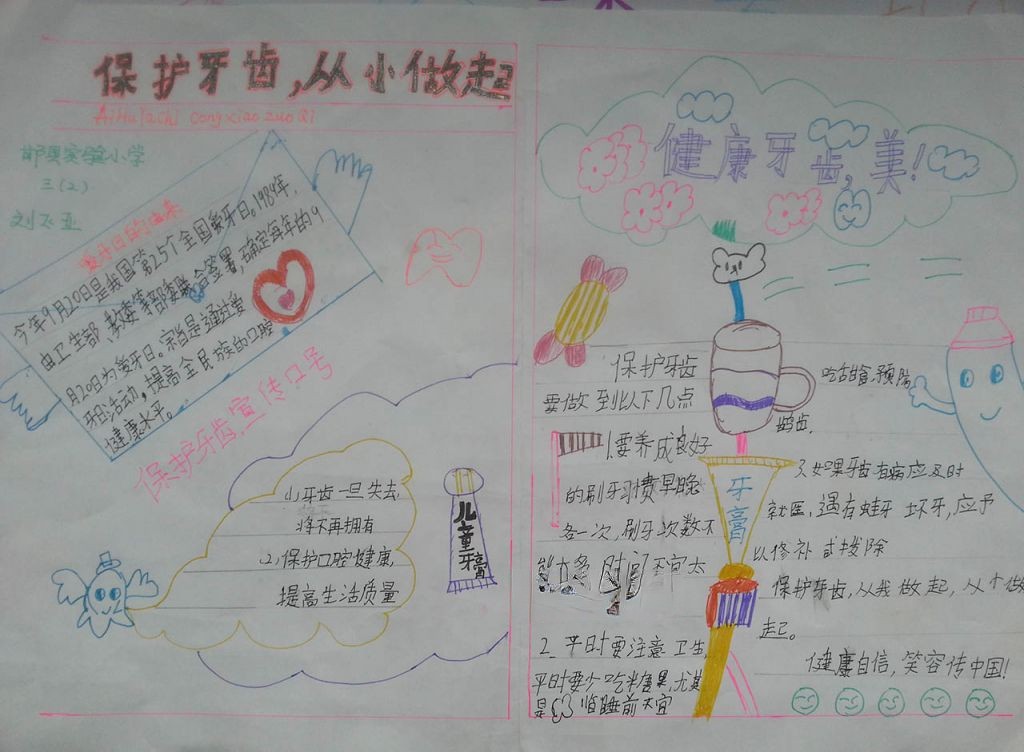 保护牙齿,从小做起
AiHuYachi Congxiao zuo Qi
实验小学
三(2)
刘飞亚
爱牙日的由来
今年9月20日是我国第25个全国爱牙日。1989年,
由卫生部、教委等部委联合签署,确定每年的9
月20日为爱牙日。宗旨是通过爱
牙日活动,提高全民族的口腔
健康水平。
保护牙齿宣传口号
(1)牙齿一旦失去,
将不再拥有
(2)保护口腔健康,
提高生活质量
儿童牙膏
健康牙齿,美!
保护牙齿
要做到以下几点
1.要养成良好
的刷牙习惯早晚
各一次,刷牙次数不
时间不宜太
2.平时要注意卫生,
平时要少吃米糖果,尤其
是 临睡前不宜
吃甜食.预防
龋齿.
牙膏
3.如果牙齿有病应及时
就医,遇有蛀牙坏牙,应予
以修补或拔除
保护牙齿,从我做起,从小做
起。
健康自信,笑容传中国!